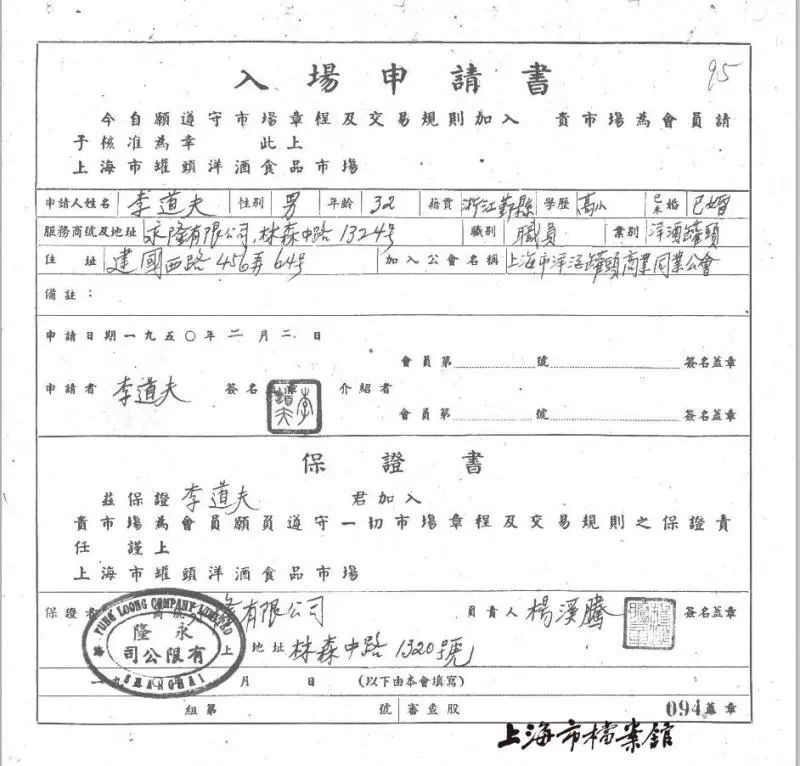 95
入場申請書
今自願遵守市場章程及交易規則加入 貴市場為會員請
予核准為幸 此上
上海市罐頭洋酒食品市場
申請人姓名 李道夫 性別 男 年齡 32 籍貫 浙江鄞縣 學歷 高小 已未婚 已婚
服務商號及地址 永隆有限公司,林森中路1324号 職別 職員 業別 洋酒罐頭
住址 建國西路456弄64号 加入公會名稱 上海市洋酒罐頭商業同業公會
備註:
申請日期一九五〇年二月二日
會員第 號 簽名蓋章
申請者 李道夫 簽名蓋章 介紹者
李道夫
會員第 號 簽名蓋章
保證書
茲保證 李道夫 君加入
貴市場為會員願負遵守一切市場章程及交易規則之保證責
任 謹上
上海市罐頭洋酒食品市場
保證者 有限公司 負責人 楊溪騰 簽名蓋章
YUNG LOONG COMPANY LIMITED
永隆
有限公司
SHANGHAI
地址 林森中路1320號
月 日 (以下由本會填寫)
組第 號 審查股 094 蓋章
上海市檔案館